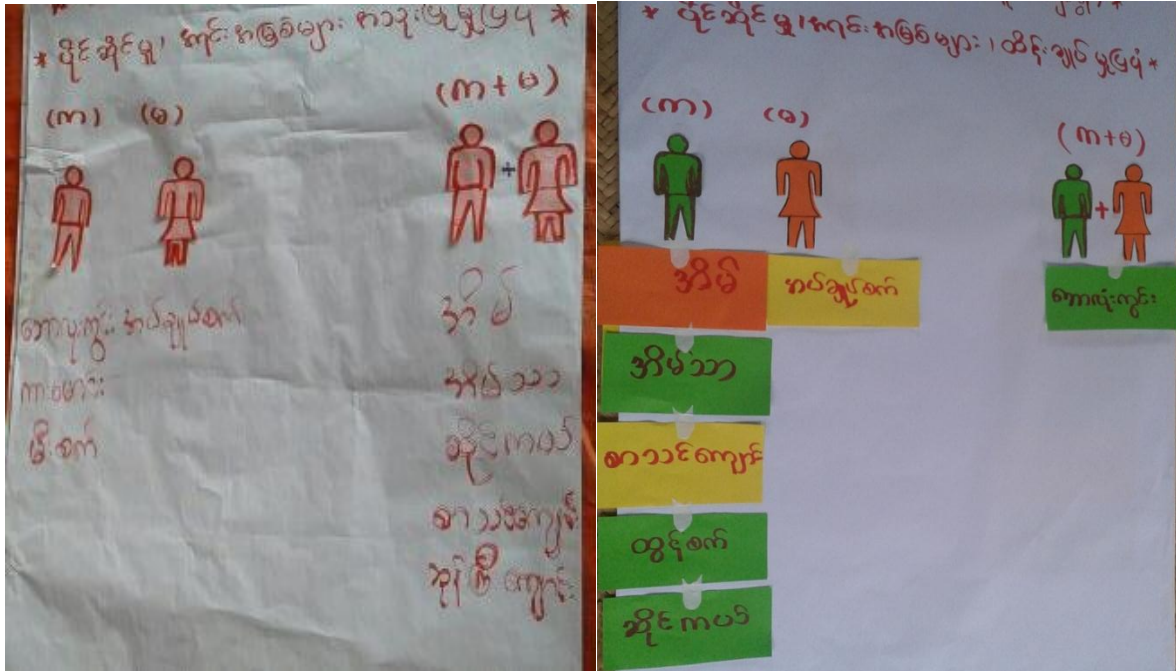 * ပိုင်ဆိုင်မှု၊ အရင်းအမြစ်များ အသုံးပြုမှုပြပုံ *
(ကာ) (မ) (ကာ+မ)
ဘောလုံးကွင်း အပ်ချုပ်စက် အိမ်
ကားမောင်း အိမ်သာ
မီးစက် ဆိုင်ကယ်
စာသင်ကျောင်း
ဘုန်ကြီးကျောင်း
* ပိုင်ဆိုင်မှု၊ အရင်းအမြစ်များ ၊ ထိန်းချုပ်မှုပြပုံ *
(ကာ) (မ) (ကာ+မ)
အိမ် အပ်ချုပ်စက် ဘောလုံးကွင်း
အိမ်သာ
စာသင်ကျောင်း
ထွန်စက်
ဆိုင်ကယ်